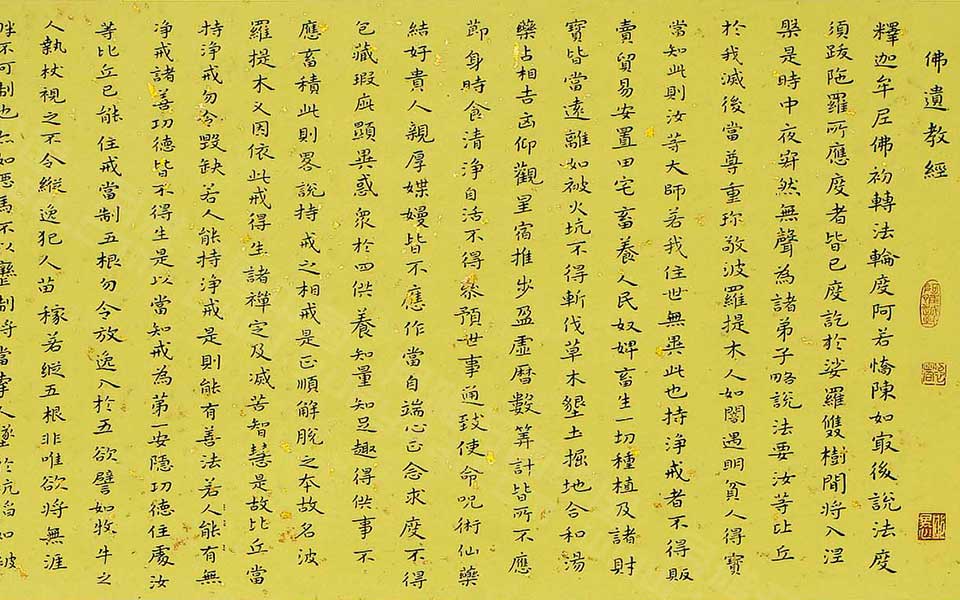 佛遺教經
釋迦牟尼佛初轉法輪度阿若憍陳如最後說法度
須跋陁羅所應度者皆已度訖於娑羅雙樹間將入涅
槃是時中夜寂然無聲為諸弟子略說法要汝等比丘
於我滅後當尊重珎敬波羅提木人如闇遇明貧人得寶
當知此則汝等大師若我住世無異此也持淨戒者不得販
賣貿易安置田宅畜養人民奴婢畜生一切種植及諸財
寶皆當遠離如被火坑不得斬伐草木墾土掘地合和湯
藥占相吉凶仰觀星宿推步盈虛曆數筭計皆所不應
節身時食清淨自活不得叅預世事通致使命呪術仙藥
結好貴人親厚媟嫚皆不應作當自端心正念求度不得
包藏瑕疵顯異惑衆於四供養知量知足趣得供事不
應畜積此則畧說持戒之相戒是正順解脫之本故名波
羅提木叉因依此戒得生諸禪定及滅苦智慧是故比丘當
持淨戒勿令毀缺若人能持淨戒是則能有善法若人能有無
淨戒諸善功德皆不得生是以當知戒為第一安隱功德住處汝
等比丘已能住戒當制五根勿令放逸入於五欲譬如牧牛之
人執杖視之不令縱逸犯人苗稼若縱五根非唯欲將無涯
畔不可制也亦如惡馬不以轡制將當牽人墜於坑陷如被